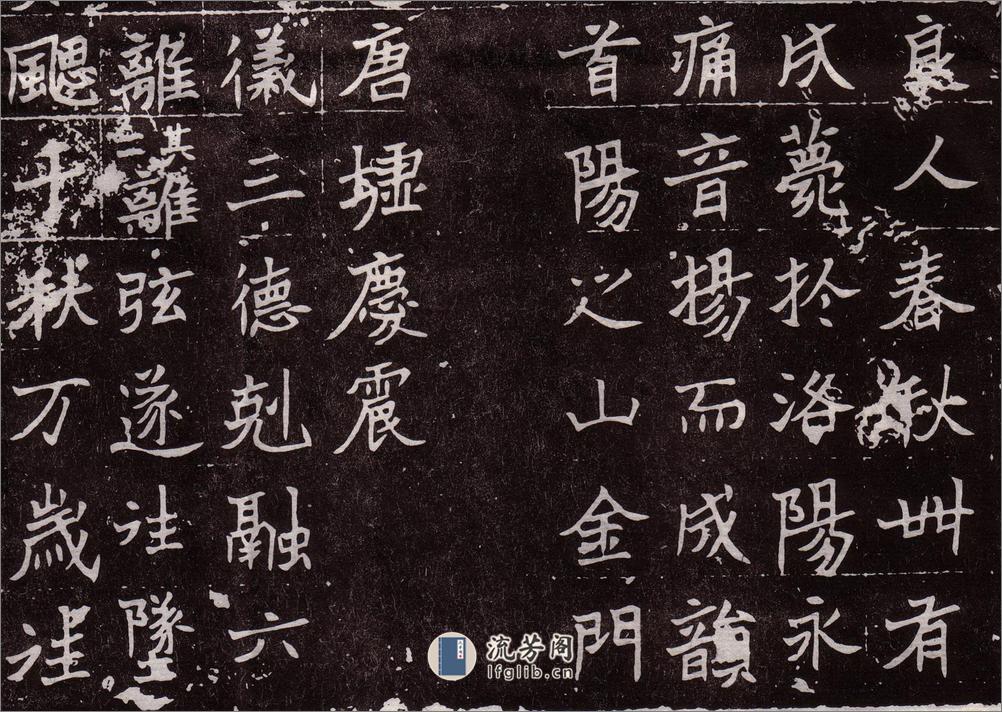 良人春秋卌有
薨於洛陽永
痛音揚而成韻
首陽之山金門
唐墟慶震
儀三德剋融六
離其三離弦遂往墜
颸千秋万歲往
流芳阁
lfglib.cn